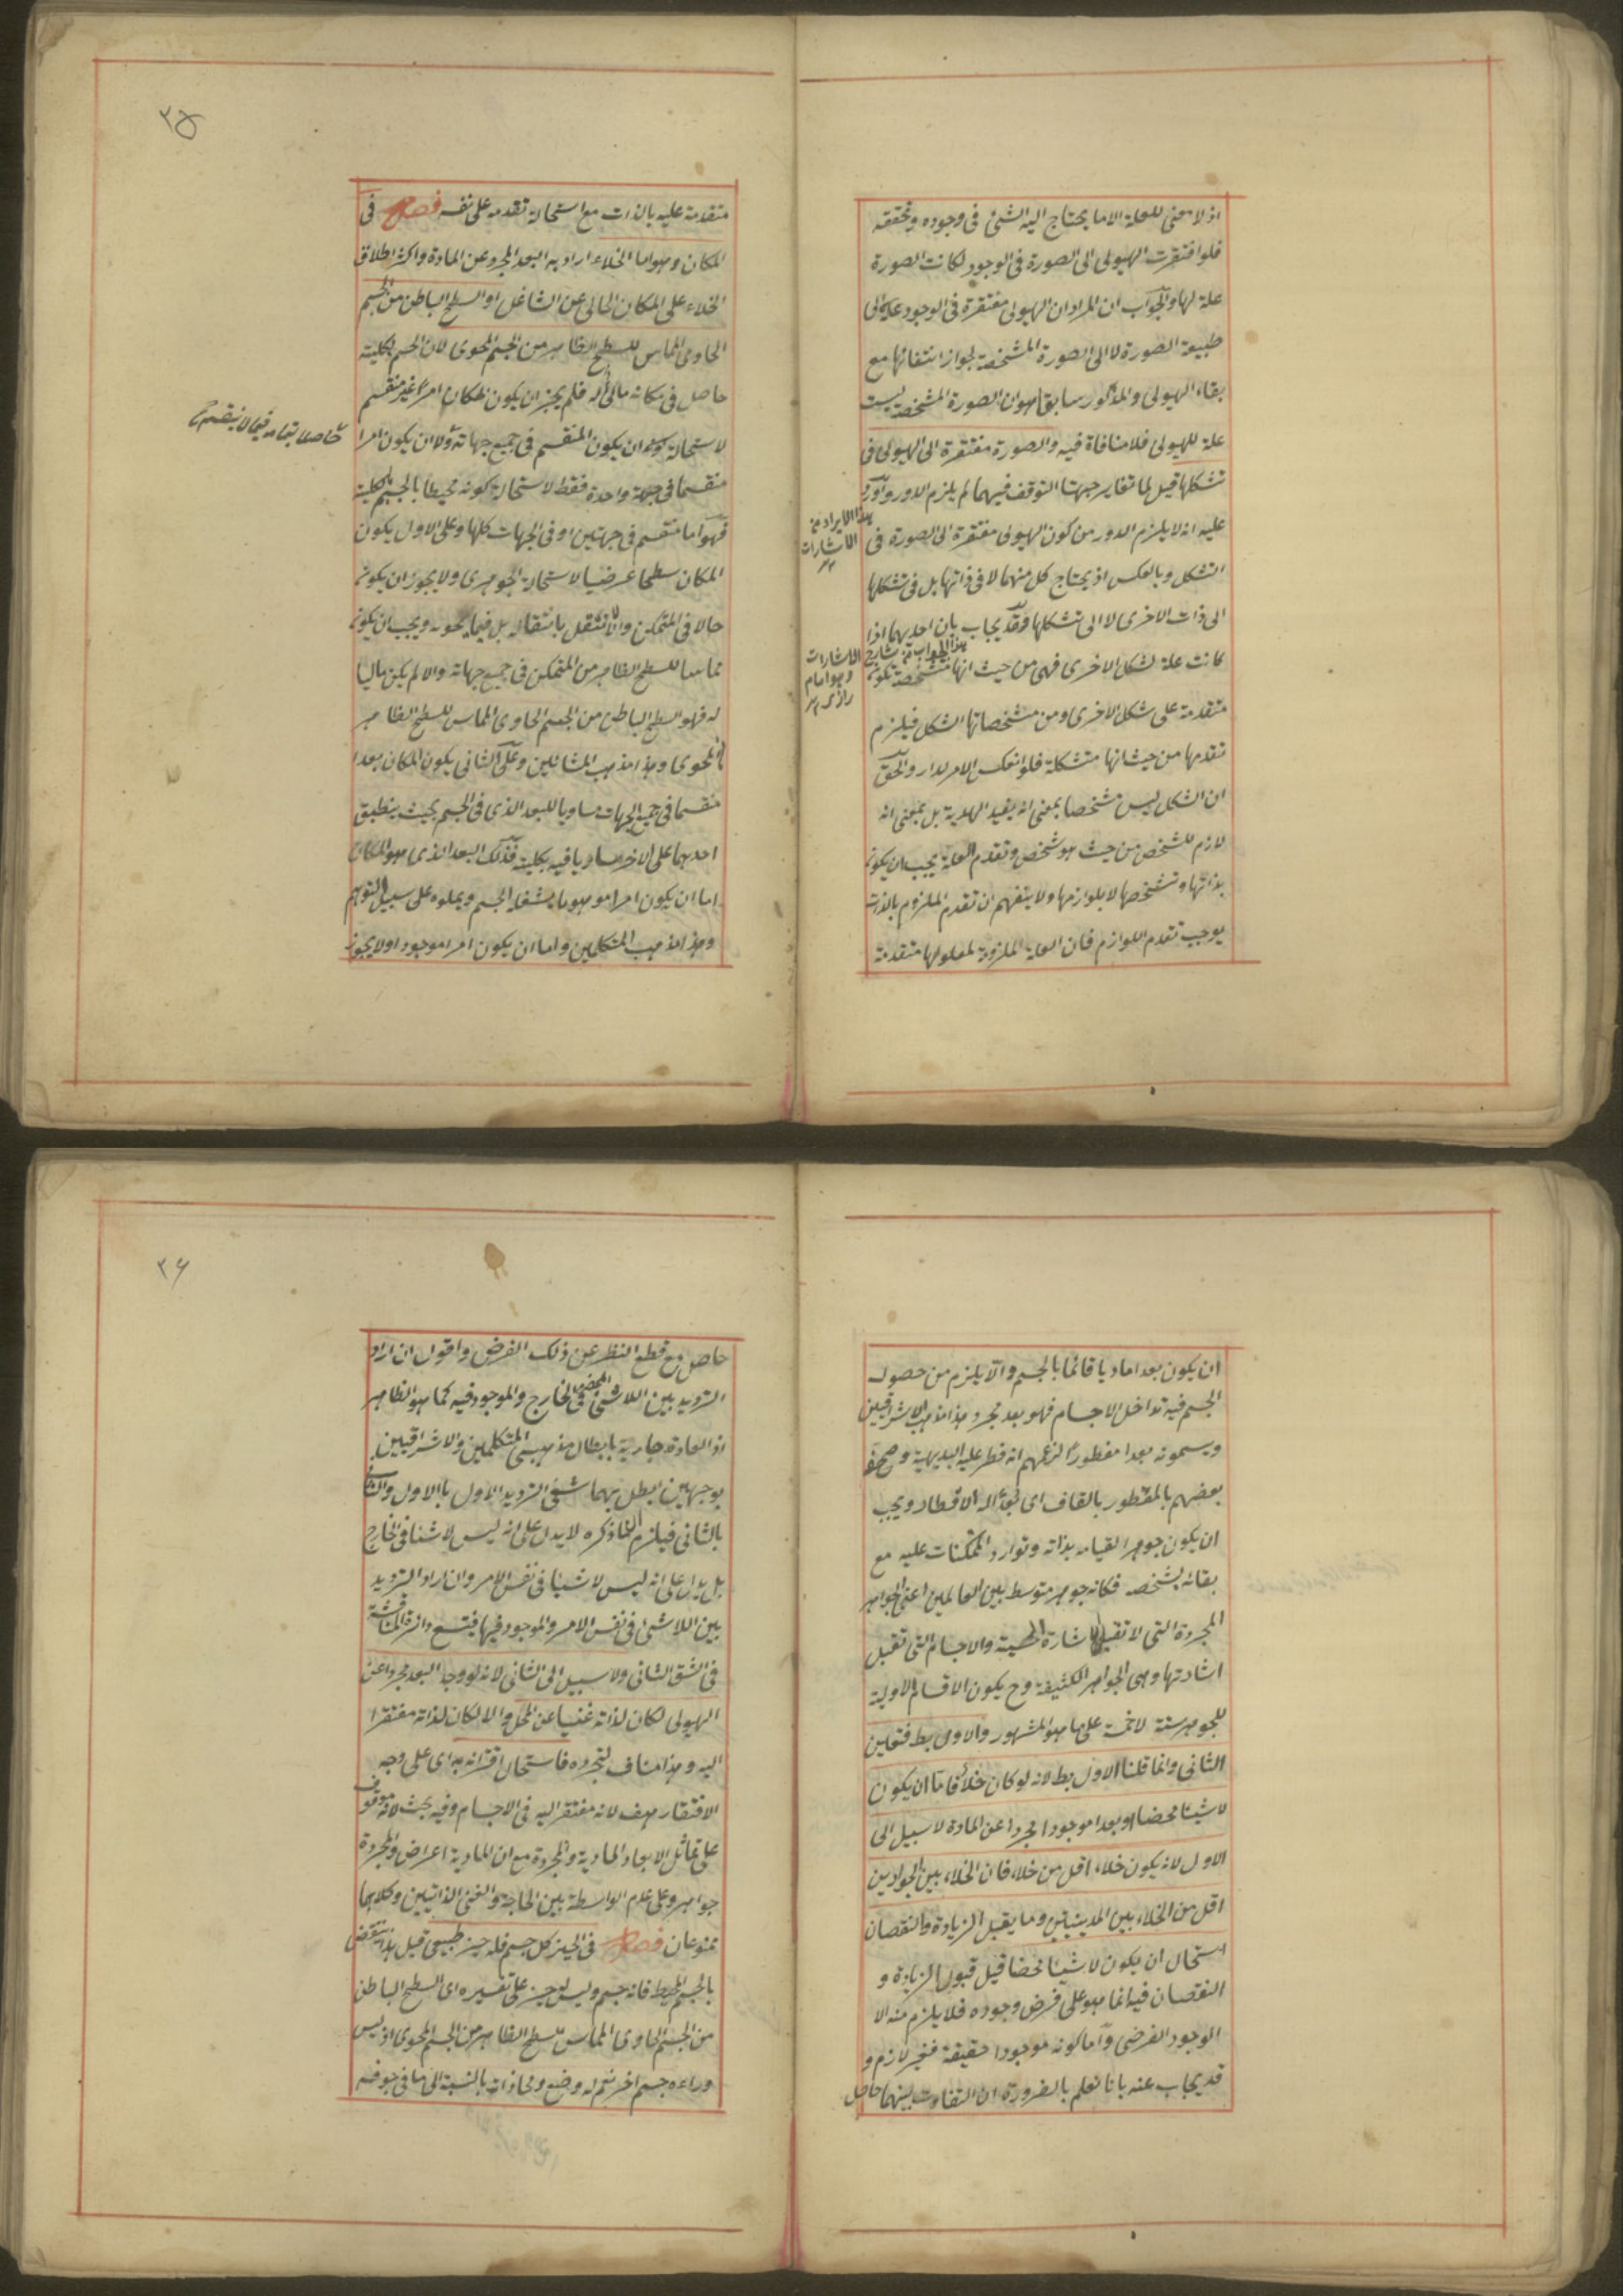 اذ لا معنى للعلة الا ما يحتاج اليه الشئ فى وجوده وتحققه
فلو افتقرت الهيولى الى الصورة فى الوجود لكانت الصورة
علة لها والجواب ان المراد ان الهيولى مفتقرة فى الوجود الى
طبيعة الصورة لا الى الصورة المشخصة لجواز انتفائها مع
بقاء الهيولى والمذكور سابقا هو ان الصورة المشخصة ليست
علة للهيولى فلا منافاة فيه والصورة مفتقرة الى الهيولى فى
تشكلها قيل لما تغاير جهتا التوقف فيهما لم يلزم الدور واورد
عليه انه لا يلزم الدور من كون الهيولى مفتقرة الى الصورة فى
التشكل وبالعكس اذ يحتاج كل منهما لا فى ذاتها بل فى تشكلها
الى ذات الاخرى لا الى تشكلها وقد يجاب بان احديهما اذا
كانت علة لشكل الاخرى فهى من حيث انها متشخصة تكون
متقدمة على شكل الاخرى ومن مشخصاتها الشكل فيلزم
تقدمها من حيث انها متشكلة فلو انعكس الامر لدار والحق
ان الشكل ليس مشخصا بمعنى انه يفيد الهذية بل بمعنى انه
لازم للشخص من حيث هو شخص وتقدم العلة يجب ان يكون
بذاتها وتشخصها لا بلوازمها ولا يتفهم ان تقدم الملزوم بالذات
يوجب تقدم اللوازم فان العلة الملزومة لمعلولها متقدمة
هذا الايراد من
الاشارات
هذا الجواب من شارح الاشارات
وهو امام
رازى
٢٥
متقدمة عليه بالذات مع استحالة تقدمه على نفسه فصل فى
المكان وهو اما الخلاء اراد به البعد المجرد عن المادة واكثر اطلاق
الخلاء على المكان الخالى عن الشاغل او السطح الباطن من الجسم
الحاوى المماس للسطح الظاهر من الجسم المحوى لان الجسم بكليته
حاصل فى مكانه مالئ له فلم يجز ان يكون المكان امرا غير منقسم
لاستحالة ان يكون المنقسم فى جميع جهاته ولا ان يكون امرا
منقسما فى جهة واحدة فقط لاستحالة كونه محيطا بالجسم بكليته
فهو اما منقسم فى جهتين او فى الجهات كلها وعلى الاول يكون
المكان سطحا عرضيا لاستحالة الجوهرى ولا يجوز ان يكون
حالا فى المتمكن والا لانتقل بانتقاله بل فيما يحويه ويجب ان يكون
مماسا للسطح الظاهر من المتمكن فى جميع جهاته والا لم يكن مالئا
له فهو السطح الباطن من الجسم الحاوى المماس للسطح الظاهر
من المحوى وهذا مذهب المشائين وعلى الثانى يكون المكان بعدا
منقسما فى جميع الجهات مساويا للبعد الذى فى الجسم بحيث ينطبق
احدهما على الاخر ساريا فيه بكليته فذلك البعد الذى هو المكان
اما ان يكون امرا موهوما يشغله الجسم ويملوه على سبيل التوهم
وهذا مذهب المتكلمين واما ان يكون امرا موجودا ولا يجوز
حاصلا بتمامه فيما لا ينقسم
ان يكون بعدا ماديا قائما بالجسم والا يلزم من حصول
الجسم فيه تداخل الاجسام فهو بعد مجرد هذا مذهب الاشراقيين
ويسمونه بعدا مفطورا لزعمهم انه فطر عليه البديهة وصحفه
بعضهم بالمقطور بالقاف اى بعد له الاقطار ويجب
ان يكون جوهرا لقيامه بذاته وتوارد الممكنات عليه مع
بقائه بشخصه فكانه جوهر متوسط بين العالمين اعنى الجواهر
المجردة التى لا تقبل الاشارة الحسية والاجسام التى تقبل
اشارتها وهى الجواهر الكثيفة وح يكون الاقسام الاولية
للجوهر ستة لا خمسة على ما هو المشهور والاول بط فتعين
الثانى وانما قلنا الاول بط لانه لو كان خلأ فاما ان يكون
لا شيئا محضا او بعدا موجودا مجردا عن المادة لا سبيل الى
الاول لانه يكون خلاء اقل من خلاء فان الخلاء بين الجدارين
اقل من الخلاء بين المدينتين وما يقبل الزيادة والنقصان
استحال ان يكون لا شيئا محضا قيل قبول الزيادة و
النقصان فيه انما هو على فرض وجوده فلا يلزم منه الا
الوجود الفرضى واما كونه موجودا حقيقة فغير لازم و
قد يجاب عنه بانا نعلم بالضرورة ان التفاوت بينهما حاصل
٢٦
حاصل مع قطع النظر عن ذلك الفرض واقول ان اراد
الترديد بين اللاشئ المحض فى الخارج والموجود فيه كما هو الظاهر
اذ العادة جارية بابطال مذهبى المتكلمين والاشراقيين
بوجهين ابطل بهما شقى الترديد الاول بالاول والثانى
بالثانى فيلزم ان ما ذكره لا يدل على انه ليس لا شيئا فى الخارج
بل يدل على انه ليس لا شيئا فى نفس الامر وان اراد الترديد
بين اللاشئ فى نفس الامر والموجود فيها فيتسع دائرة المناقشة
فى الشق الثانى ولا سبيل الى الثانى لانه لو وجد البعد مجردا عن
الهيولى لكان لذاته غنيا عن المحل والا لكان لذاته مفتقرا
اليه وهذا مناف لتجرده فاستحال اقترانه به اى على وجه
الافتقار هف لانه مفتقر اليه فى الاجسام وفيه بحث لانه موقوف
على تماثل الابعاد المادية والمجردة مع ان المادية اعراض والمجردة
جواهر وعلى عدم الواسطة بين الحاجة والغنى الذاتيين وكلاهما
ممنوعان فصل فى الحيز كل جسم فله حيز طبيعى قيل هذا ينتقض
بالجسم المحيط فانه جسم وليس له حيز على تفسيره اى السطح الباطن
من الجسم الحاوى المماس للسطح الظاهر من الجسم المحوى اذ ليس
وراءه جسم اخر نعم له وضع ومحاذاة بالنسبة الى ما فى جوفه